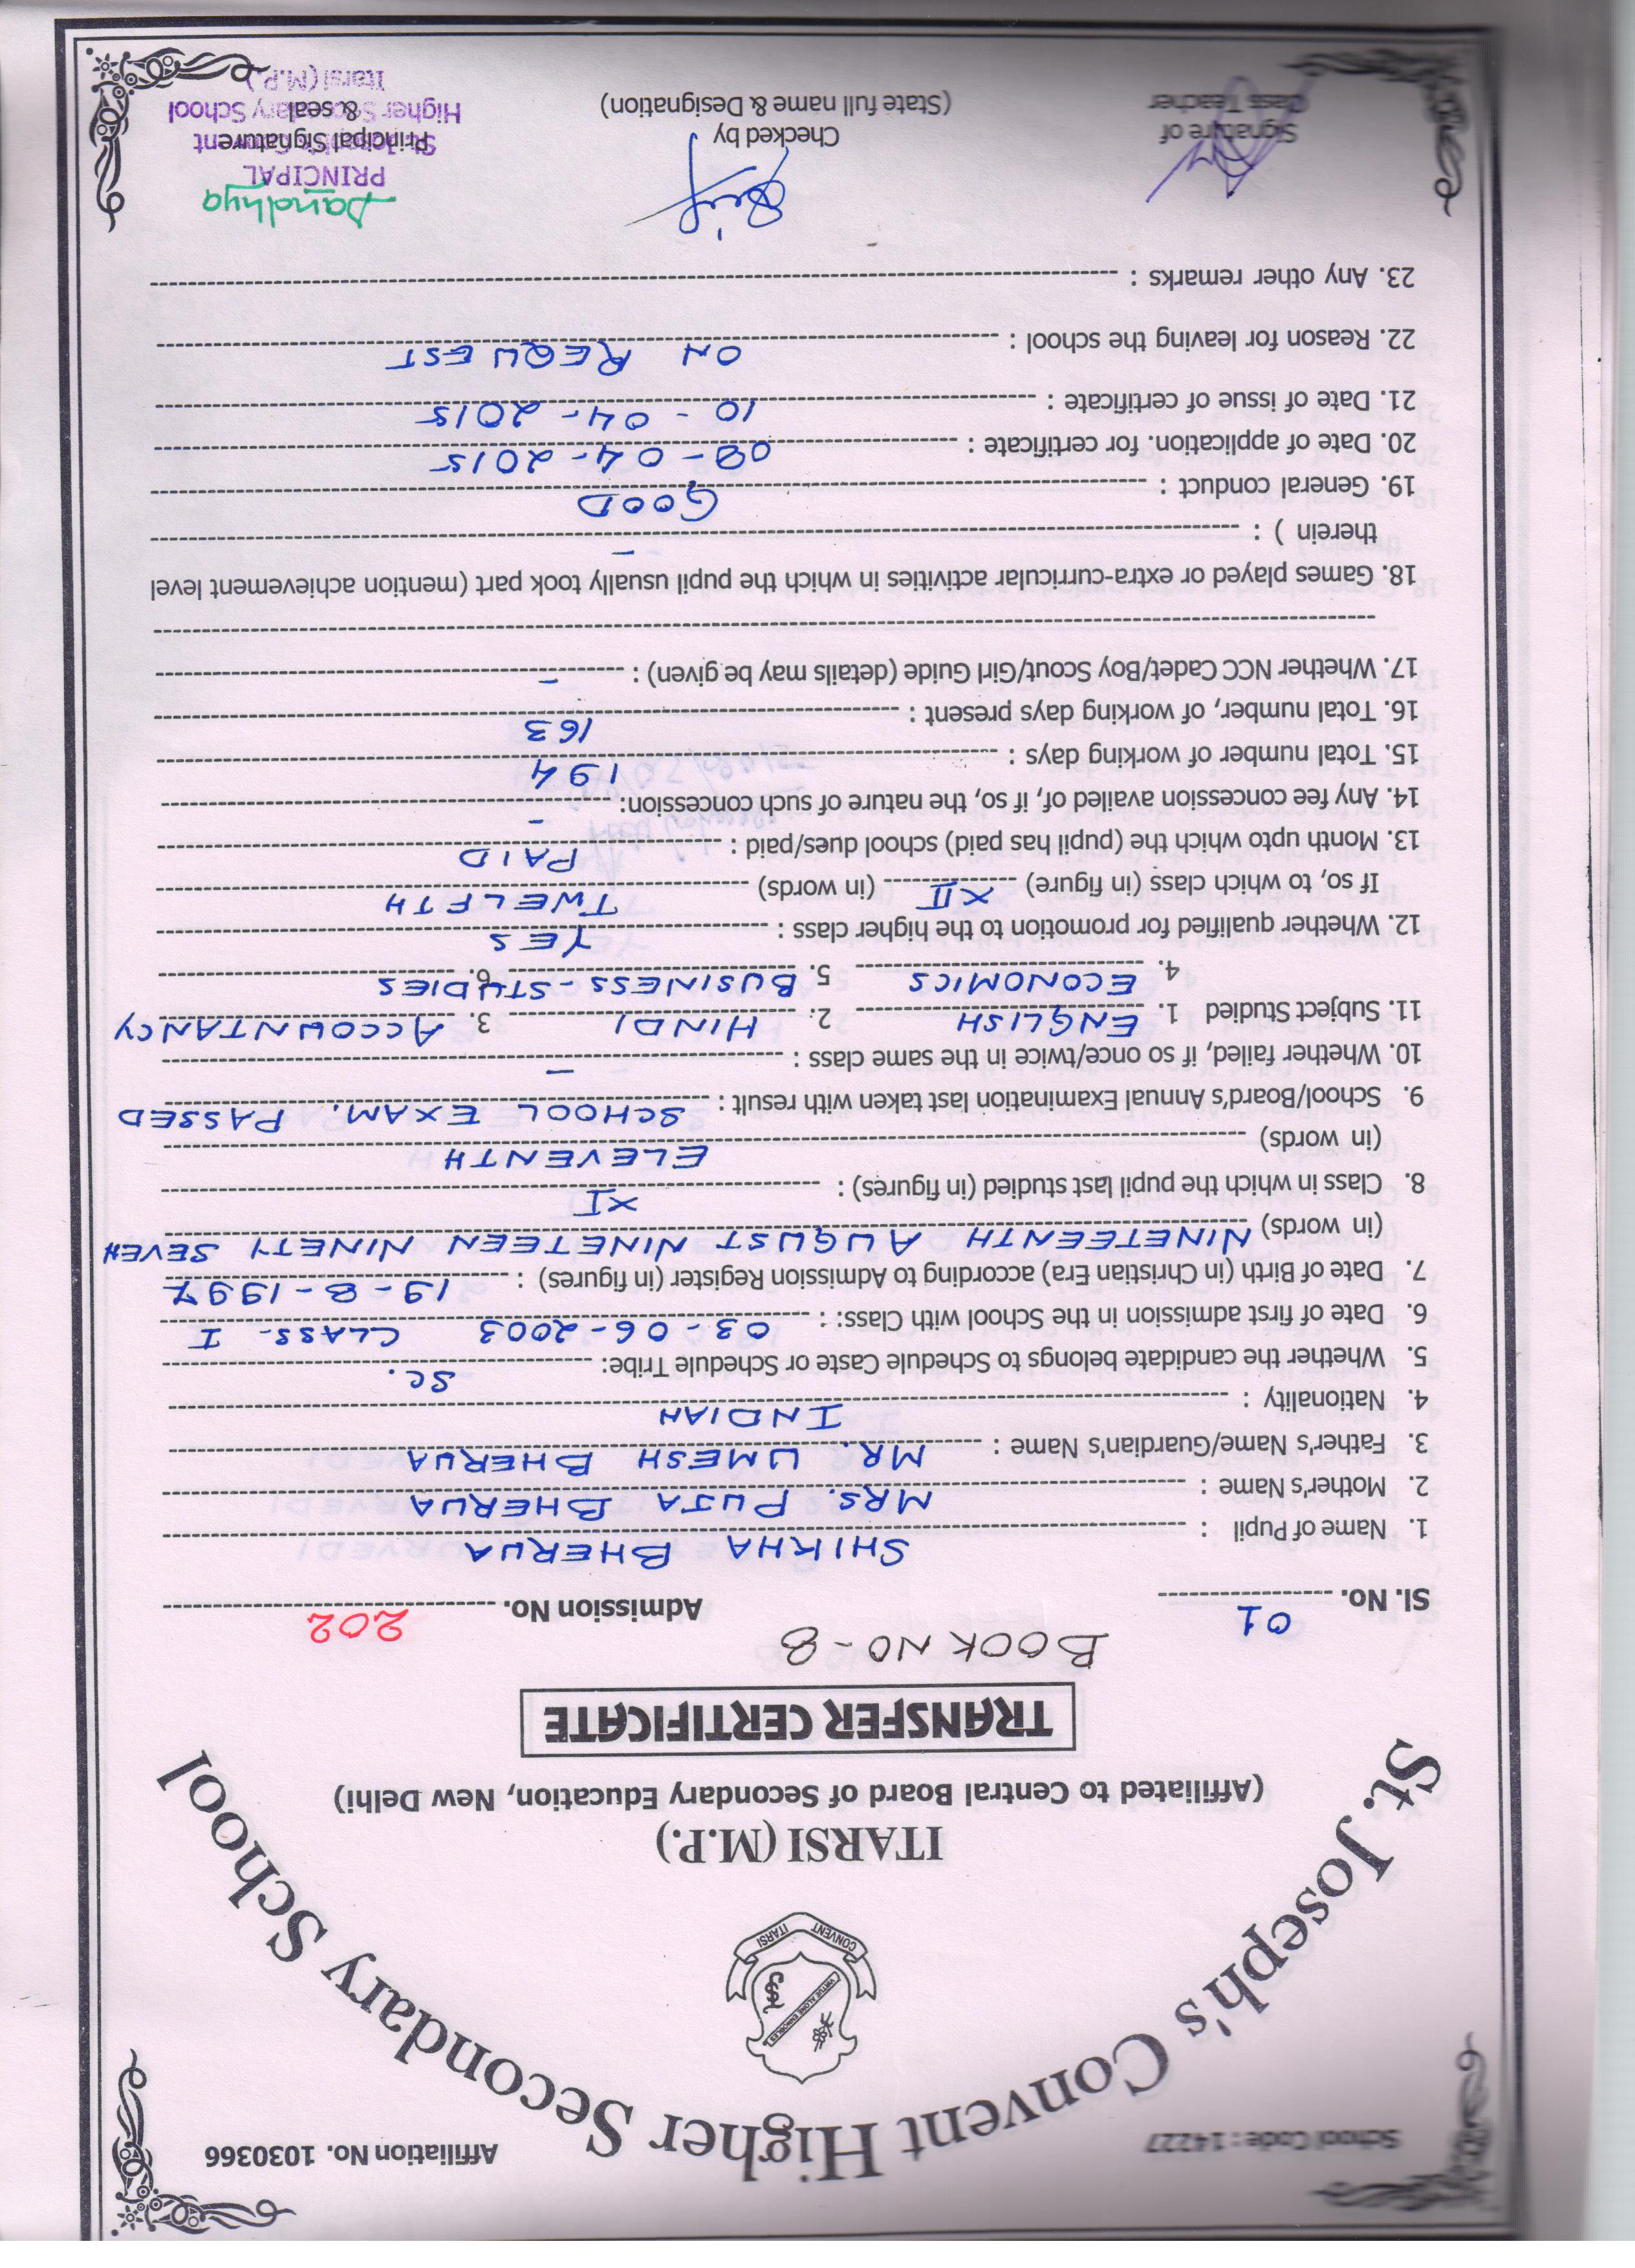 School Code : 14227
Affiliation No. 1030366
St. Joseph's Convent Higher Secondary School
VIRTUE ALONE ENNOBLES
CONVENT ITARSI
ITARSI (M.P.)
(Affiliated to Central Board of Secondary Education, New Delhi)
TRANSFER CERTIFICATE
BOOK NO - 8
Sl. No. 01 Admission No. 202
1. Name of Pupil : SHIKHA BHERUA
2. Mother's Name : MRS. PUJA BHERUA
3. Father's Name/Guardian's Name : MR. UMESH BHERUA
4. Nationality : INDIAN
5. Whether the candidate belongs to Schedule Caste or Schedule Tribe: SC.
6. Date of first admission in the School with Class: : 03-06-2003 CLASS- I
7. Date of Birth (in Christian Era) according to Admission Register (in figures) : 19-8-1997
(in words) NINETEENTH AUGUST NINETEEN NINETY SEVEN
8. Class in which the pupil last studied (in figures) : XI
(in words) ELEVENTH
9. School/Board's Annual Examination last taken with result : SCHOOL EXAM. PASSED
10. Whether failed, if so once/twice in the same class : –
11. Subject Studied 1. ENGLISH 2. HINDI 3. ACCOUNTANCY
4. ECONOMICS 5. BUSINESS-STUDIES 6.
12. Whether qualified for promotion to the higher class : YES
If so, to which class (in figure) XII (in words) TWELFTH
13. Month upto which the (pupil has paid) school dues/paid : PAID
14. Any fee concession availed of, if so, the nature of such concession: –
15. Total number of working days : 194
16. Total number, of working days present : 163
17. Whether NCC Cadet/Boy Scout/Girl Guide (details may be given) : –
18. Games played or extra-curricular activities in which the pupil usually took part (mention achievement level
therein ) : –
19. General conduct : GOOD
20. Date of application. for certificate : 08-04-2015
21. Date of issue of certificate : 10-04-2015
22. Reason for leaving the school : ON REQUEST
23. Any other remarks :
Signature of
Class Teacher
Checked by
(State full name & Designation)
PRINCIPAL
Principal Signature
& seal
St. Joseph's Convent
Higher Secondary School
Itarsi (M.P.)